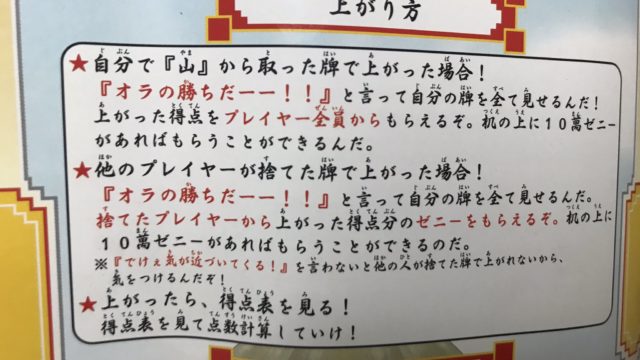 上がり方
★自分で『山』から取った牌で上がった場合！
『オラの勝ちだーー！！』と言って自分の牌を全て見せるんだ！
上がった得点をプレイヤー全員からもらえるぞ。机の上に１０萬ゼニー
があればもらうことができるんだ。
★他のプレイヤーが捨てた牌で上がった場合！
『オラの勝ちだーー！！』と言って自分の牌を全て見せるんだ。
捨てたプレイヤーから上がった得点分のゼニーをもらえるぞ。机の上に
１０萬ゼニーがあればもらうことができるのだ。
※『でけぇ気が近づいてくる！』を言わないと他の人が捨てた牌で上がれないから、
気をつけるんだぞ！
★上がったら、得点表を見る！
得点表を見て点数計算していけ！